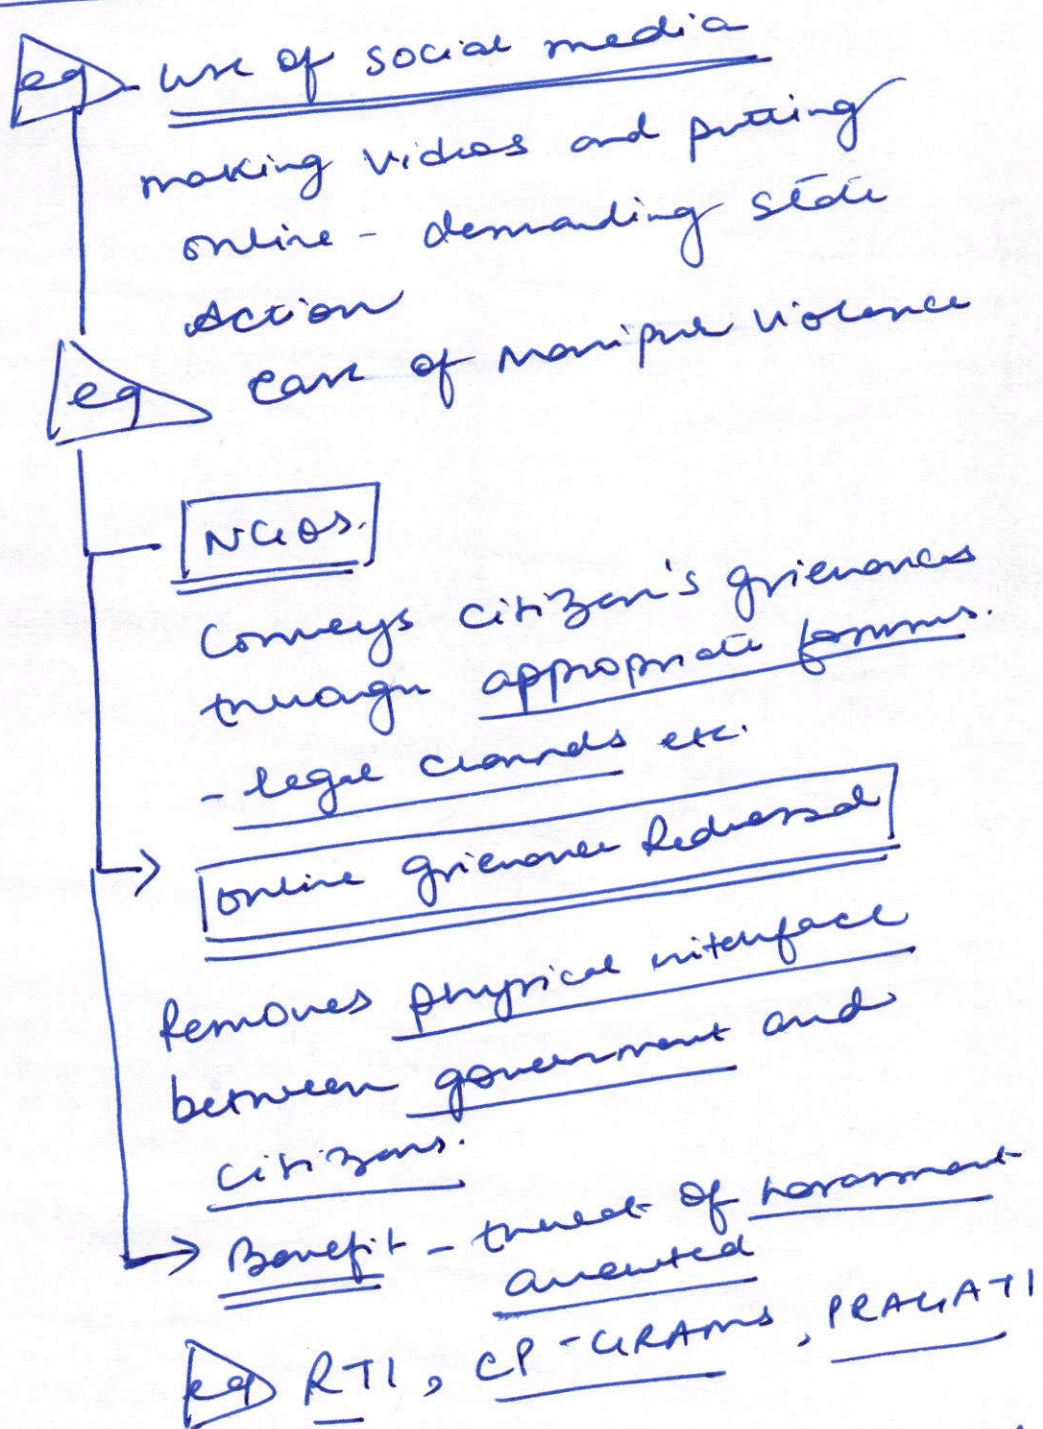 eg - use of social media
making videos and putting
online - demanding state
Action
eg case of Manipur violence
NGOs.
Conveys citizen's grievances
through appropriate forums.
- legal channels etc.
online grievance Redressal
Removes physical interface
between government and
citizens.
Benefit - threat of harassment
averted
eg RTI, CP-GRAMS, PRAGATI